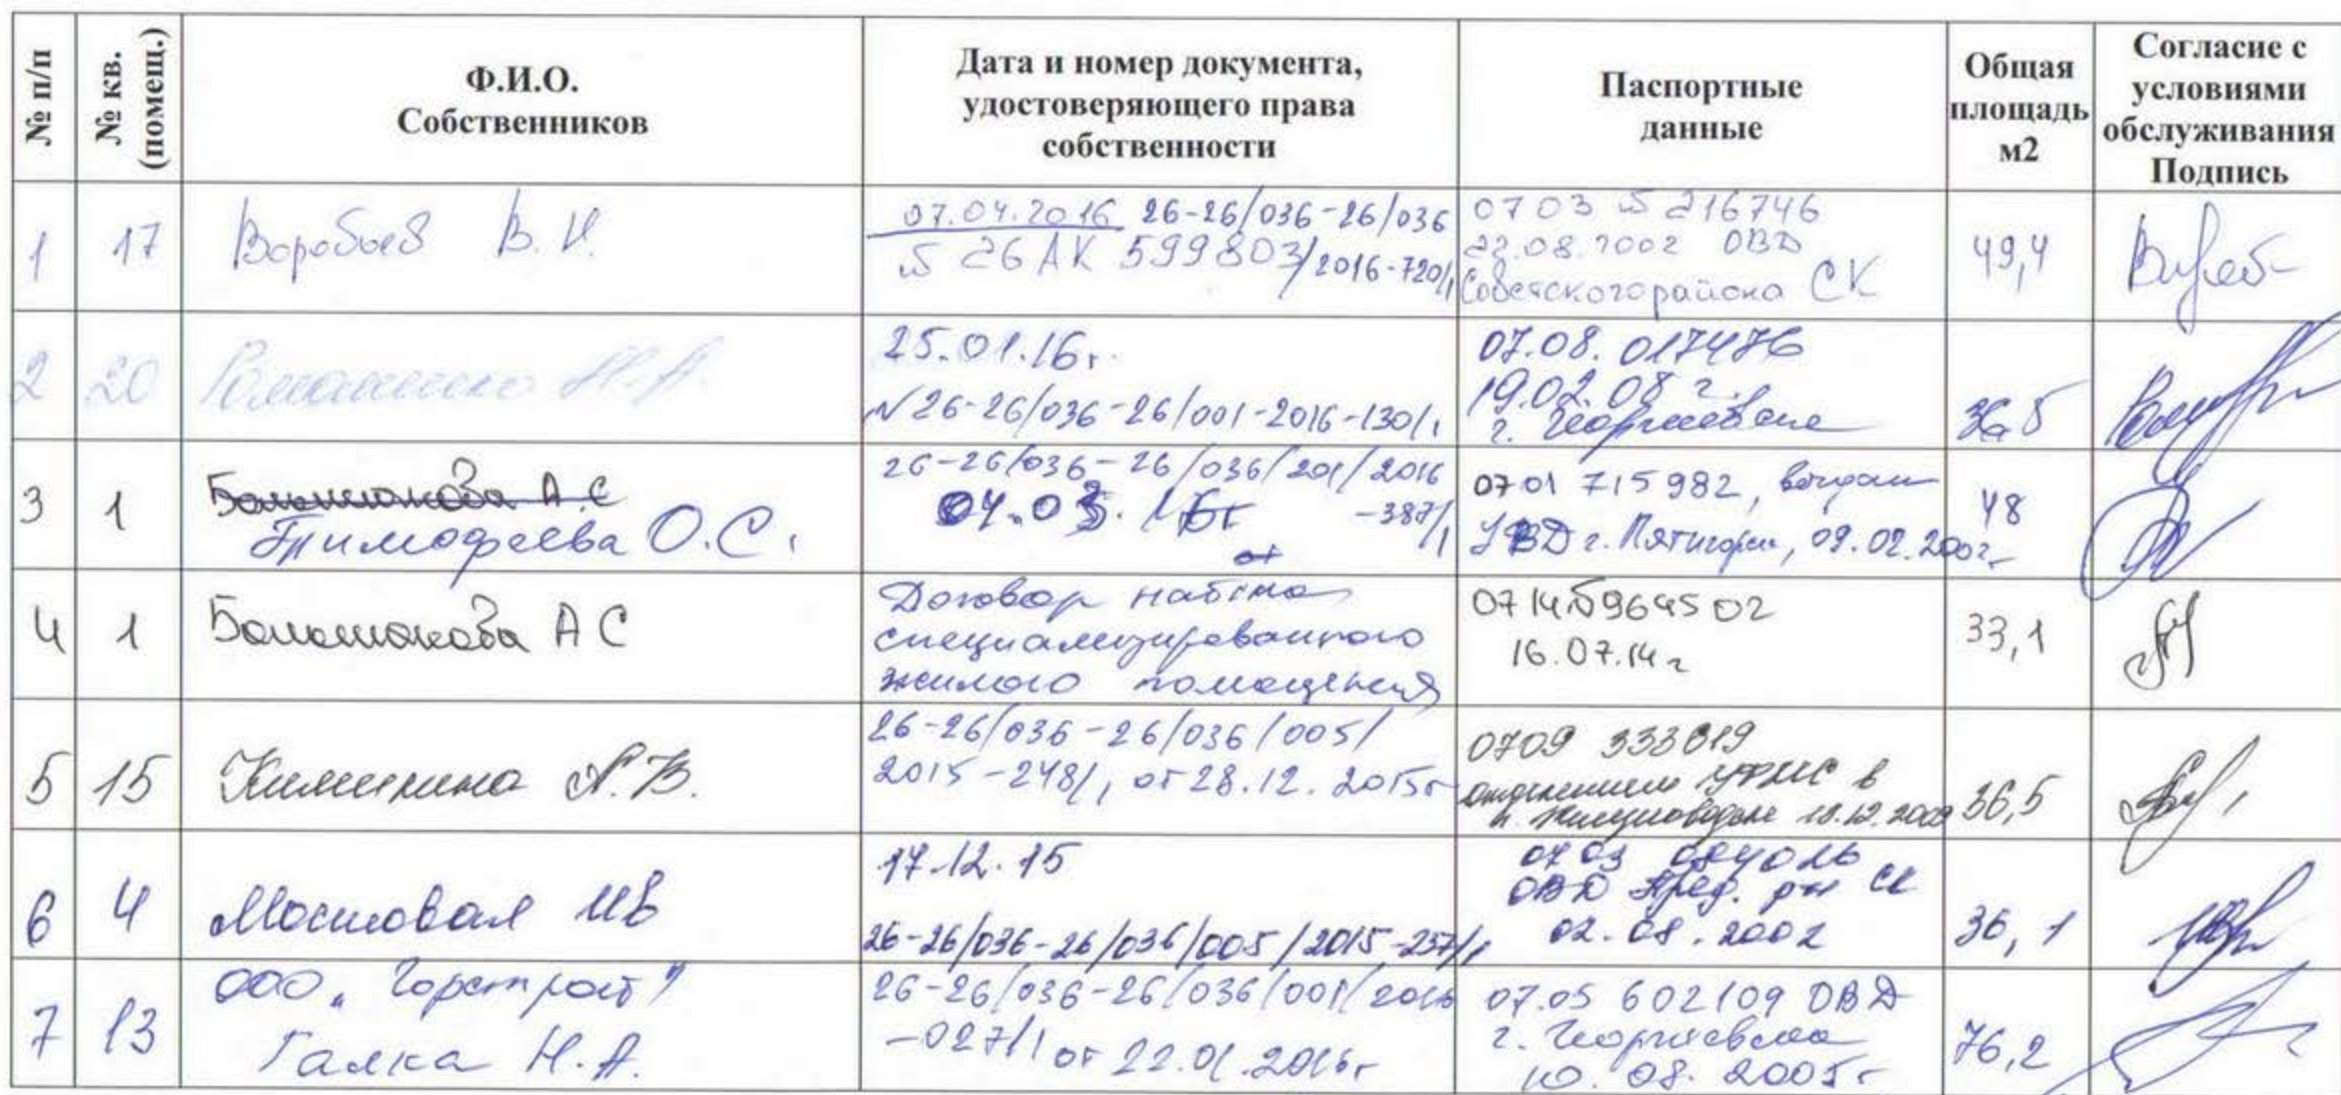 № п/п
№ кв. (помещ.)
Ф.И.О.
Собственников
Дата и номер документа,
удостоверяющего права
собственности
Паспортные
данные
Общая
площадь
м2
Согласие с
условиями
обслуживания
Подпись
1
17
Воробьев В. И.
07.04.2016 26-26/036-26/036
№ 26 АК 599803/2016-720/1
0703 № 216746
22.08.2002 ОВД
Советского района СК
49,4
2
20
Романенко Н.А.
25.01.16г.
№26-26/036-26/001-2016-130/1
07.08. 017476
19.02.08 г.
г. Георгиевске
36,5
3
1
А.С
Тимофеева О.С.
26-26/036-26/036/201/2016
-387/1
от
0701 715982, выдан
УВД г. Пятигорск, 09.02.2002г
48
4
1
А С
Договор найма
специализированного
жилого помещения
0714 № 964502
16.07.14г
33,1
5
15
26-26/036-26/036/005/
2015-248/1, от 28.12.2015г
0709 333819
отделением УФМС в
18.12.2009
36,5
6
4
Мостовая И В
17.12.15
26-26/036-26/036/005/2015-257/1
07 03 084026
ОВД Пред. р-н СК
02.08.2002
36,1
7
13
ООО "Горстрой"
Галка Н.А.
26-26/036-26/036/001/2016
-027/1 от 22.01.2016г
07.05 602109 ОВД
г. Георгиевска
10.08.2005г
76,2